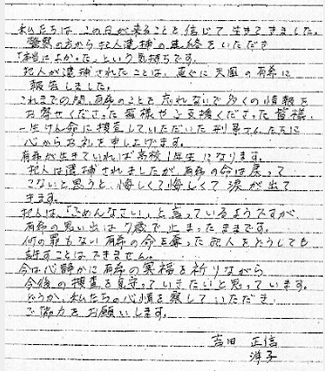 私たちは この日が来ることを 信じて 生きてきました。
警察の方から 犯人逮捕の連絡をいただき
「本当によかった」という気持ちです。
犯人が逮捕されたことは、直ぐに 天国の有希に
報告しました。
これまでの間 有希のことを 忘れないで 多くの情報を
お寄せくださった 皆様や ご支援くださった 皆様、
一生けん命に 捜査していただいた 刑事さんたちに
心からお礼を申し上げます。
有希が生きていれば 高校1年生になります。
犯人は逮捕されましたが、有希の命は戻って
こないと思うと、悔しくて悔しくて 涙が出て
きます。
犯人は、「ごめんなさい」と言っているようですが
有希の思い出は 7歳で止まったままです。
何の罪もない 有希の命を奪った 犯人を どうしても
許すことは できません。
今は 心静かに 有希の冥福を祈りながら
今後の捜査を 見守っていきたいと 思っています。
どうか、私たちの心情を 察していただき
ご協力を お願いします。
吉田 正信
洋子